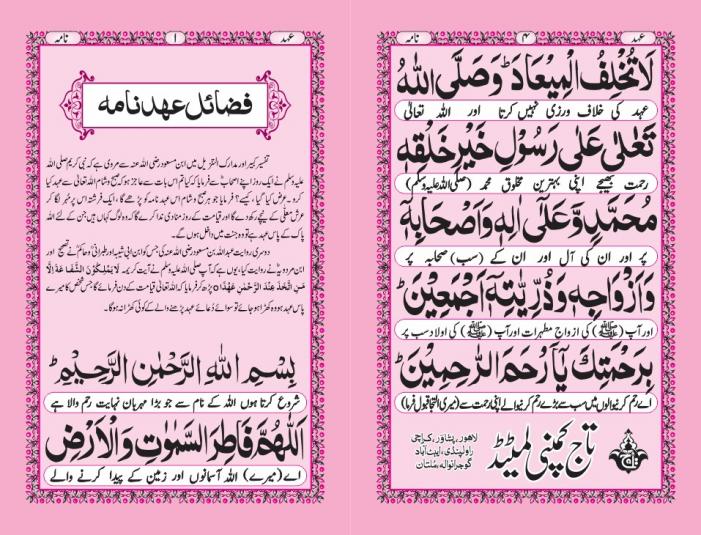 عہد ۱ نامہ
فضائل عہد نامہ
تفسیر کبیر اور مدارک التنزیل میں ابن مسعود رضی اللہ عنہ سے مروی ہے کہ نبی کریم صلی اللہ
علیہ وسلم نے ایک روز اپنے اصحابؓ سے فرمایا کہ کیا تم اس بات سے عاجز ہو کہ صبح و شام اللہ تعالیٰ سے عہد کیا
کرو۔ عرض کیا گیا، کیسے؟ فرمایا جو صبح و شام اس عہد نامہ کو پڑھے گا، ایک فرشتہ اس پر مہر لگا کر
عرش معلّٰی کے نیچے رکھ دے گا اور قیامت کے روز منادی ندا کرے گا کہ وہ لوگ کہاں ہیں جن کے لئے اللہ
پاک کے پاس عہد ہے تو وہ جنت میں داخل ہوں گے۔
دوسری روایت عبداللہ بن مسعود رضی اللہ عنہ کی جس کو ابن ابی شیبہ اور طبرانیؒ و حاکمؒ نے تصحیح اور
ابن مردویہؒ نے روایت کیا، یوں ہے کہ آپ صلی اللہ علیہ وسلم نے آیت کریمہ لَا یَمْلِکُوْنَ الشَّفَاعَةَ اِلَّا
مَنِ اتَّخَذَ عِنْدَ الرَّحْمٰنِ عَهْدًا پڑھ کر فرمایا کہ اللہ تعالیٰ قیامت کے دن فرمائے گا جس شخص کا میرے
پاس عہد ہو وہ کھڑا ہو جائے تو سوائے دُعائے عہد پڑھنے والے کے کوئی کھڑا نہ ہوگا۔
بِسْمِ اللهِ الرَّحْمٰنِ الرَّحِيْمِ ط
شروع کرتا ہوں اللہ کے نام سے جو بڑا مہربان نہایت رحم والا ہے
اَللّٰهُمَّ فَاطِرَ السَّمٰوٰتِ وَالْاَرْضِ
اے (میرے) اللہ آسمانوں اور زمین کے پیدا کرنے والے
عہد ۴ نامہ
لَا تُخْلِفُ الْمِيْعَادَ ط وَصَلَّى اللهُ
عہد کی خلاف ورزی نہیں کرتا اور اللہ تعالیٰ
تَعَالٰى عَلٰى رَسُوْلِ خَيْرِ خَلْقِهٖ
رحمت بھیجے اپنی بہترین مخلوق محمد (صلی اللہ علیہ وسلم)
مُحَمَّدٍ وَّعَلٰٓى اٰلِهٖ وَاَصْحَابِهٖ
پر اور ان کی آل اور ان کے (سب) صحابہ پر
وَاَزْوَاجِهٖ وَذُرِّيّٰتِهٖٓ اَجْمَعِيْنَ ط
اور آپ (ﷺ) کی ازواج مطہرات اور آپ (ﷺ) کی اولاد سب پر
بِرَحْمَتِكَ يَآ اَرْحَمَ الرّٰحِمِيْنَ ط
اے رحم کرنیوالوں میں سب سے بڑے رحم کرنیوالے اپنی رحمت سے (میری التجا قبول فرما)
تاج کمپنی لمیٹڈ
لاہور، پشاور، کراچی
راولپنڈی، ایبٹ آباد
گوجرانوالہ، ملتان
تاج